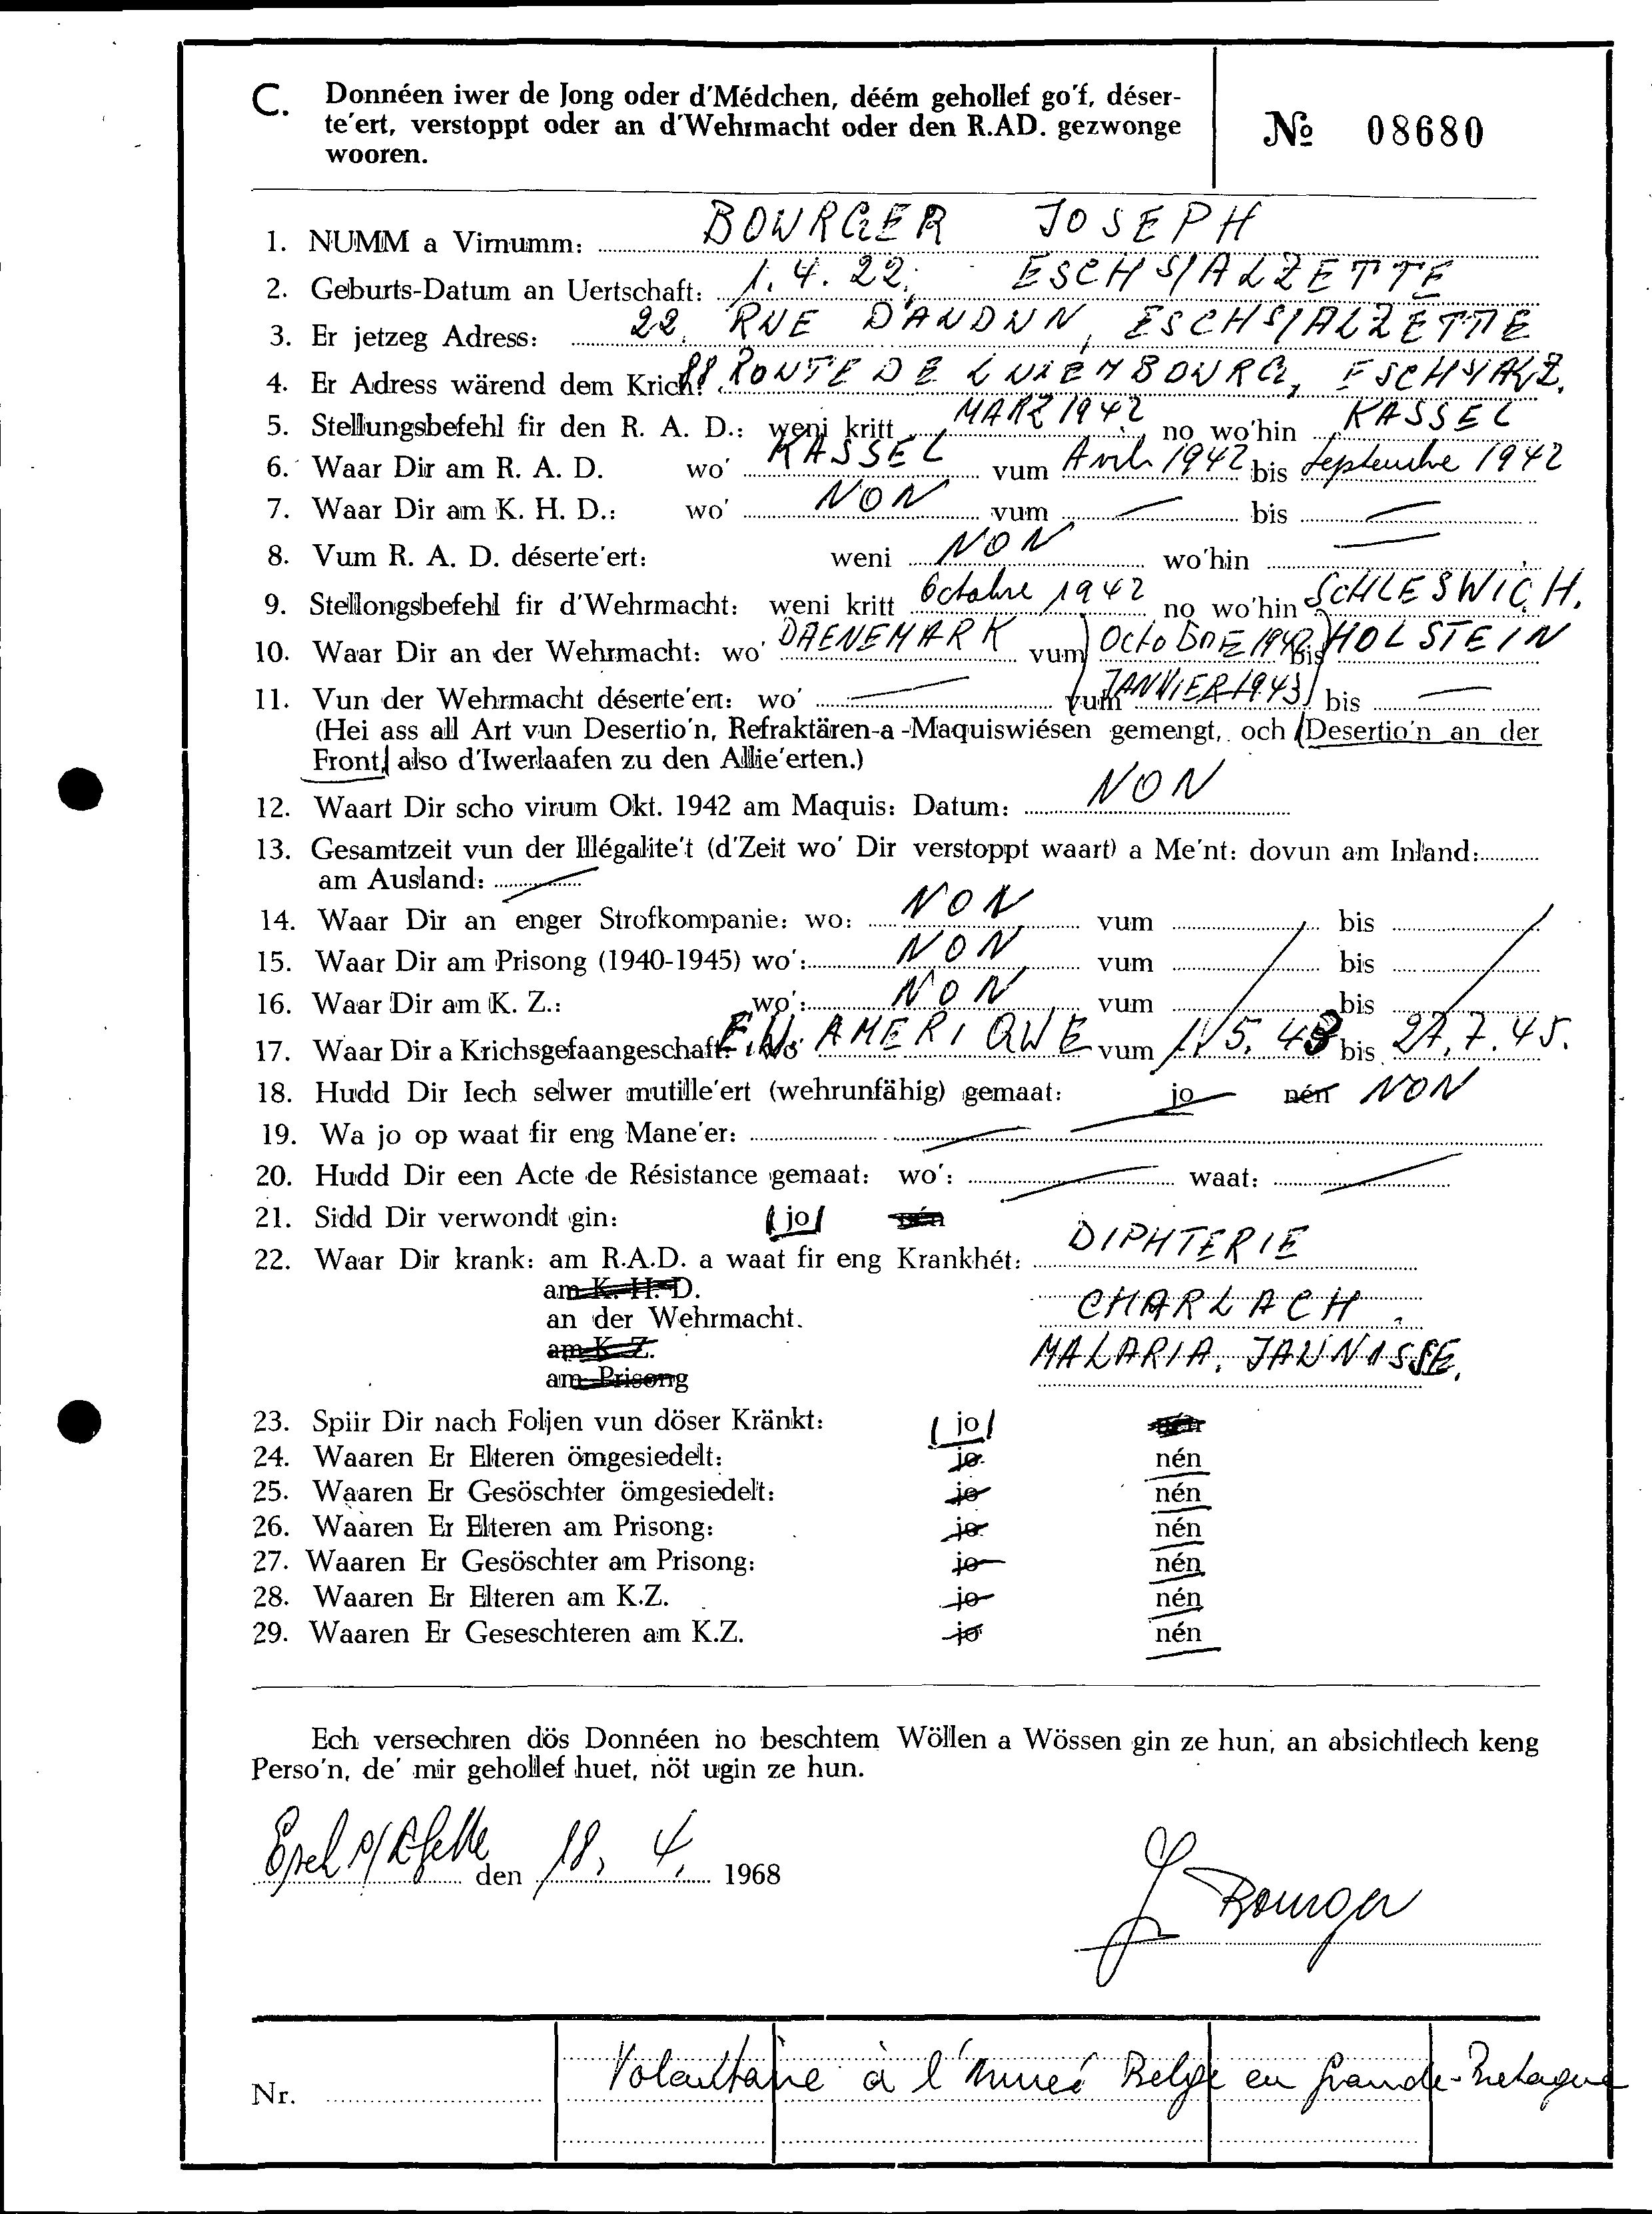 C. Donnéen iwer de Jong oder d'Médchen, déém gehollef go'f, déser-
te'ert, verstoppt oder an d'Wehrmacht oder den R.AD. gezwonge
wooren.
№ 08680
1. NUMM a Virnumm: BOURGER JOSEPH
2. Geburts-Datum an Uertschaft: 1. 4. 22. ESCH S/ALZETTE
3. Er jetzeg Adress: 22, RUE D'AUDUN, ESCH S/ALZETTE
4. Er Adress wärend dem Krich: 88 ROUTE DE LUXEMBOURG, ESCH S/ALZ.
5. Stellungsbefehl fir den R. A. D.: weni kritt MARZ 1942 no wo'hin KASSEL
6. Waar Dir am R. A. D. wo' KASSEL vum Avril 1942 bis Septembre 1942
7. Waar Dir am K. H. D.: wo' NON vum — bis —
8. Vum R. A. D. déserte'ert: weni NON wo'hin —
9. Stellongsbefehl fir d'Wehrmacht: weni kritt Octobre 1942 no wo'hin SCHLESWIG H.
10. Waar Dir an der Wehrmacht: wo' DAENEMARK vum OCTOBRE 1942 bis HOLSTEIN
11. Vun der Wehrmacht déserte'ert: wo' — vum JANVIER 1943 bis —
(Hei ass all Art vun Desertio'n, Refraktären-a-Maquiswiésen gemengt, och Desertio'n an der
Front, also d'Iwerlaafen zu den Allie'erten.)
12. Waart Dir scho virum Okt. 1942 am Maquis: Datum: NON
13. Gesamtzeit vun der Illégalite't (d'Zeit wo' Dir verstoppt waart) a Me'nt: dovun am Inland:
am Ausland: —
14. Waar Dir an enger Strofkompanie: wo: NON vum bis
15. Waar Dir am Prisong (1940-1945) wo': NON vum bis
16. Waar Dir am K. Z.: wo': NON vum bis
17. Waar Dir a Krichsgefaangeschaft: wo' AMERIQUE vum 11.5.43 bis 27.7.45.
18. Hudd Dir Iech selwer mutille'ert (wehrunfähig) gemaat: jo nén NON
19. Wa jo op waat fir eng Mane'er: —
20. Hudd Dir een Acte de Résistance gemaat: wo': — waat: —
21. Sidd Dir verwondt gin: (jo) nén
22. Waar Dir krank: am R.A.D. a waat fir eng Krankhét: DIPHTERIE
am K. H. D.
an der Wehrmacht. CHARLACH,
am K. Z. MALARIA, JAUNISSE.
am Prisong
23. Spiir Dir nach Foljen vun döser Kränkt: (jo) nén
24. Waaren Er Elteren ömgesiedelt: jo nén
25. Waaren Er Gesöschter ömgesiedelt: jo nén
26. Waaren Er Elteren am Prisong: jo nén
27. Waaren Er Gesöschter am Prisong: jo nén
28. Waaren Er Elteren am K.Z. jo nén
29. Waaren Er Geseschteren am K.Z. jo nén
Ech versechren dös Donnéen no beschtem Wöllen a Wössen gin ze hun, an absichtlech keng
Perso'n, de' mir gehollef huet, nöt ugin ze hun.
Esch s/Alzette den 18. 4. 1968
J Bourger
Volontaire à l'Armée Belge en Grande-Bretagne
Nr.